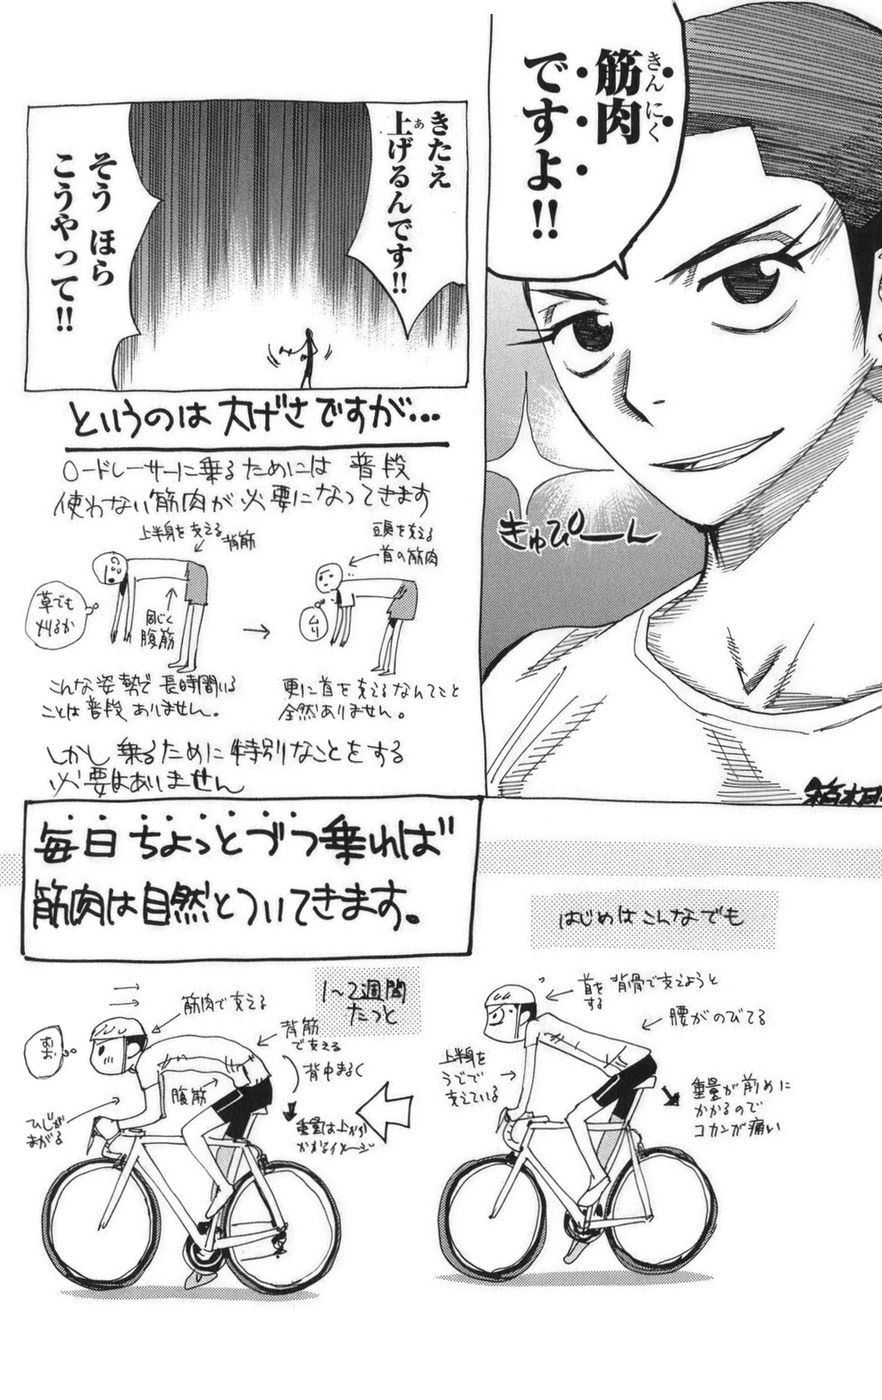 筋肉
きんにく
ですよ!!
きゅぴーん
きたえ
上げるんです!!
あ
そう ほら
こうやって!!
というのは大げさですが…
ロードレーサーに乗るためには 普段
使わない筋肉が必要になってきます
上半身を支える
背筋
草でも
刈るか
同じく
腹筋
→
頭を支える
首の筋肉
ムリ
こんな姿勢で長時間いる
ことは普段ありません。
更に首を支えるなんてこと
全然ありません。
しかし乗るために特別なことをする
必要はありません
毎日ちょっとづつ乗れば
筋肉は自然とついてきます。
はじめはこんなでも
首を 背骨で支えようと
する
腰がのびてる
上半身を
うでで
支えている
重量が前めに
かかるので
コカンが痛い
1〜2週間
たつと
筋肉で支える
背筋
で支える
背中まるく
腹筋
ひじが
まがる
重量は上から
かかるイメージ